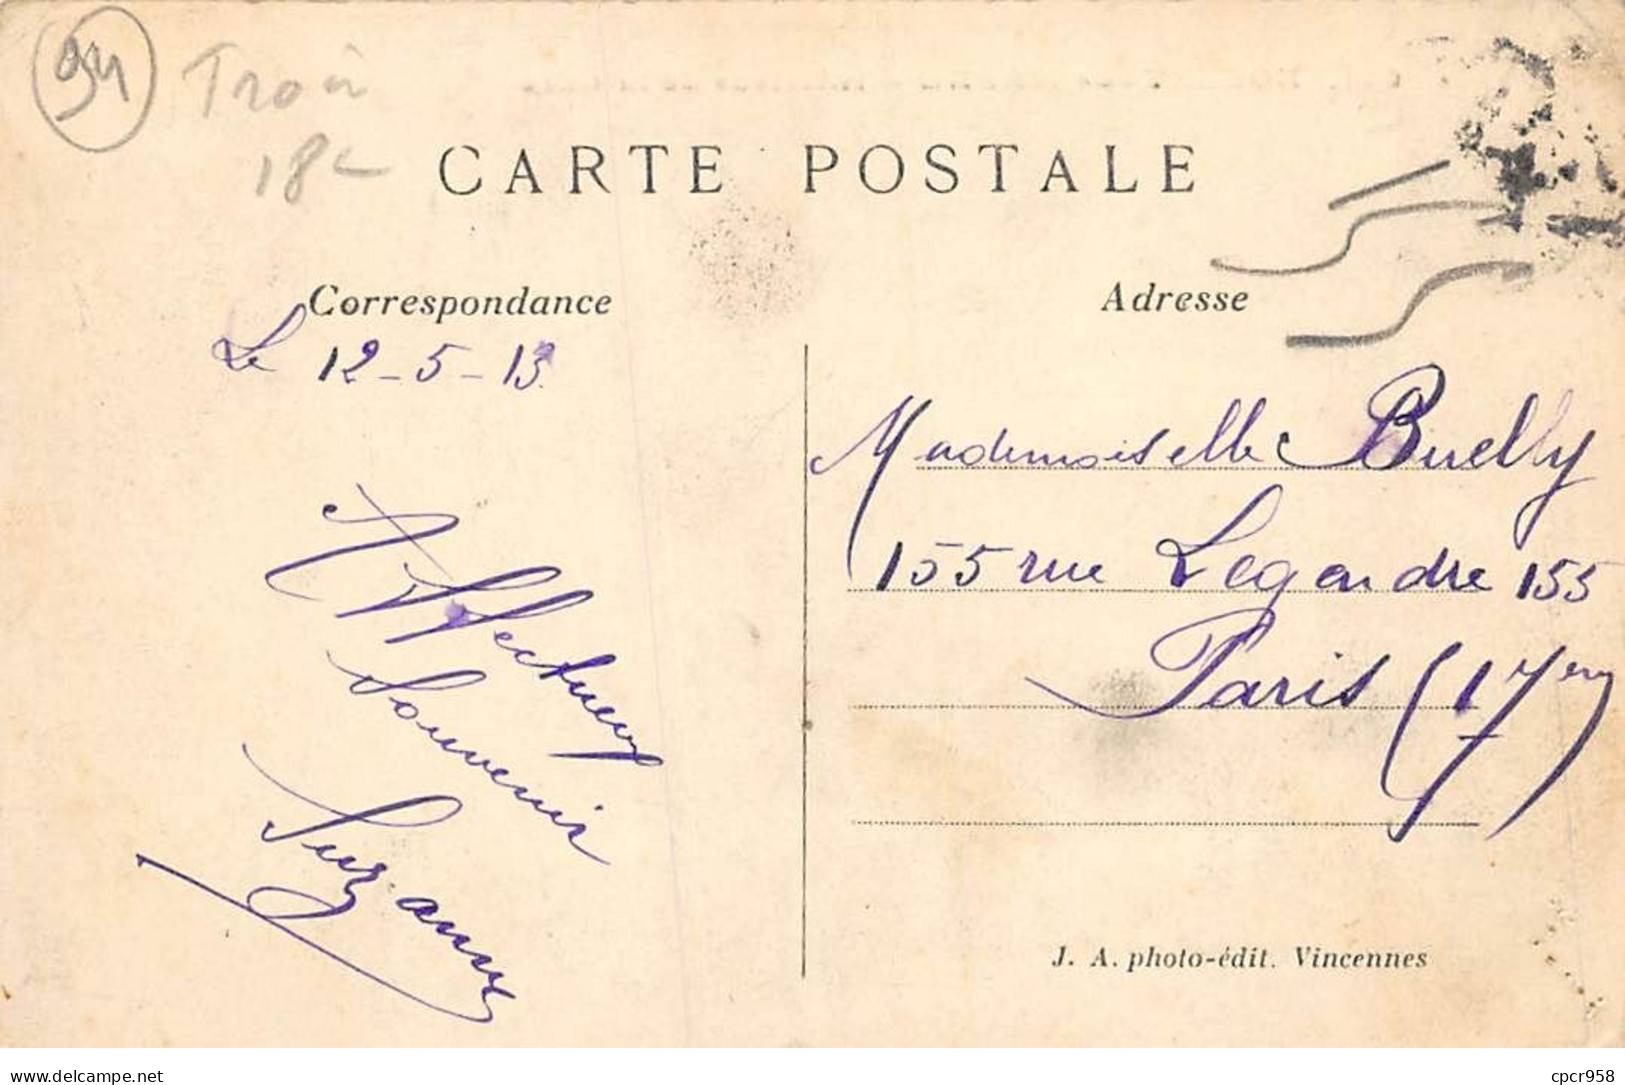 94
18
CARTE POSTALE
Correspondance
Adresse
Le 12-5-13.
Mademoiselle Buelly
155 rue Legendre 155
Paris (17em)
Affectueux
Souvenir
Suzanne
J. A. photo-édit. Vincennes
www.delcampe.net
cpcr958